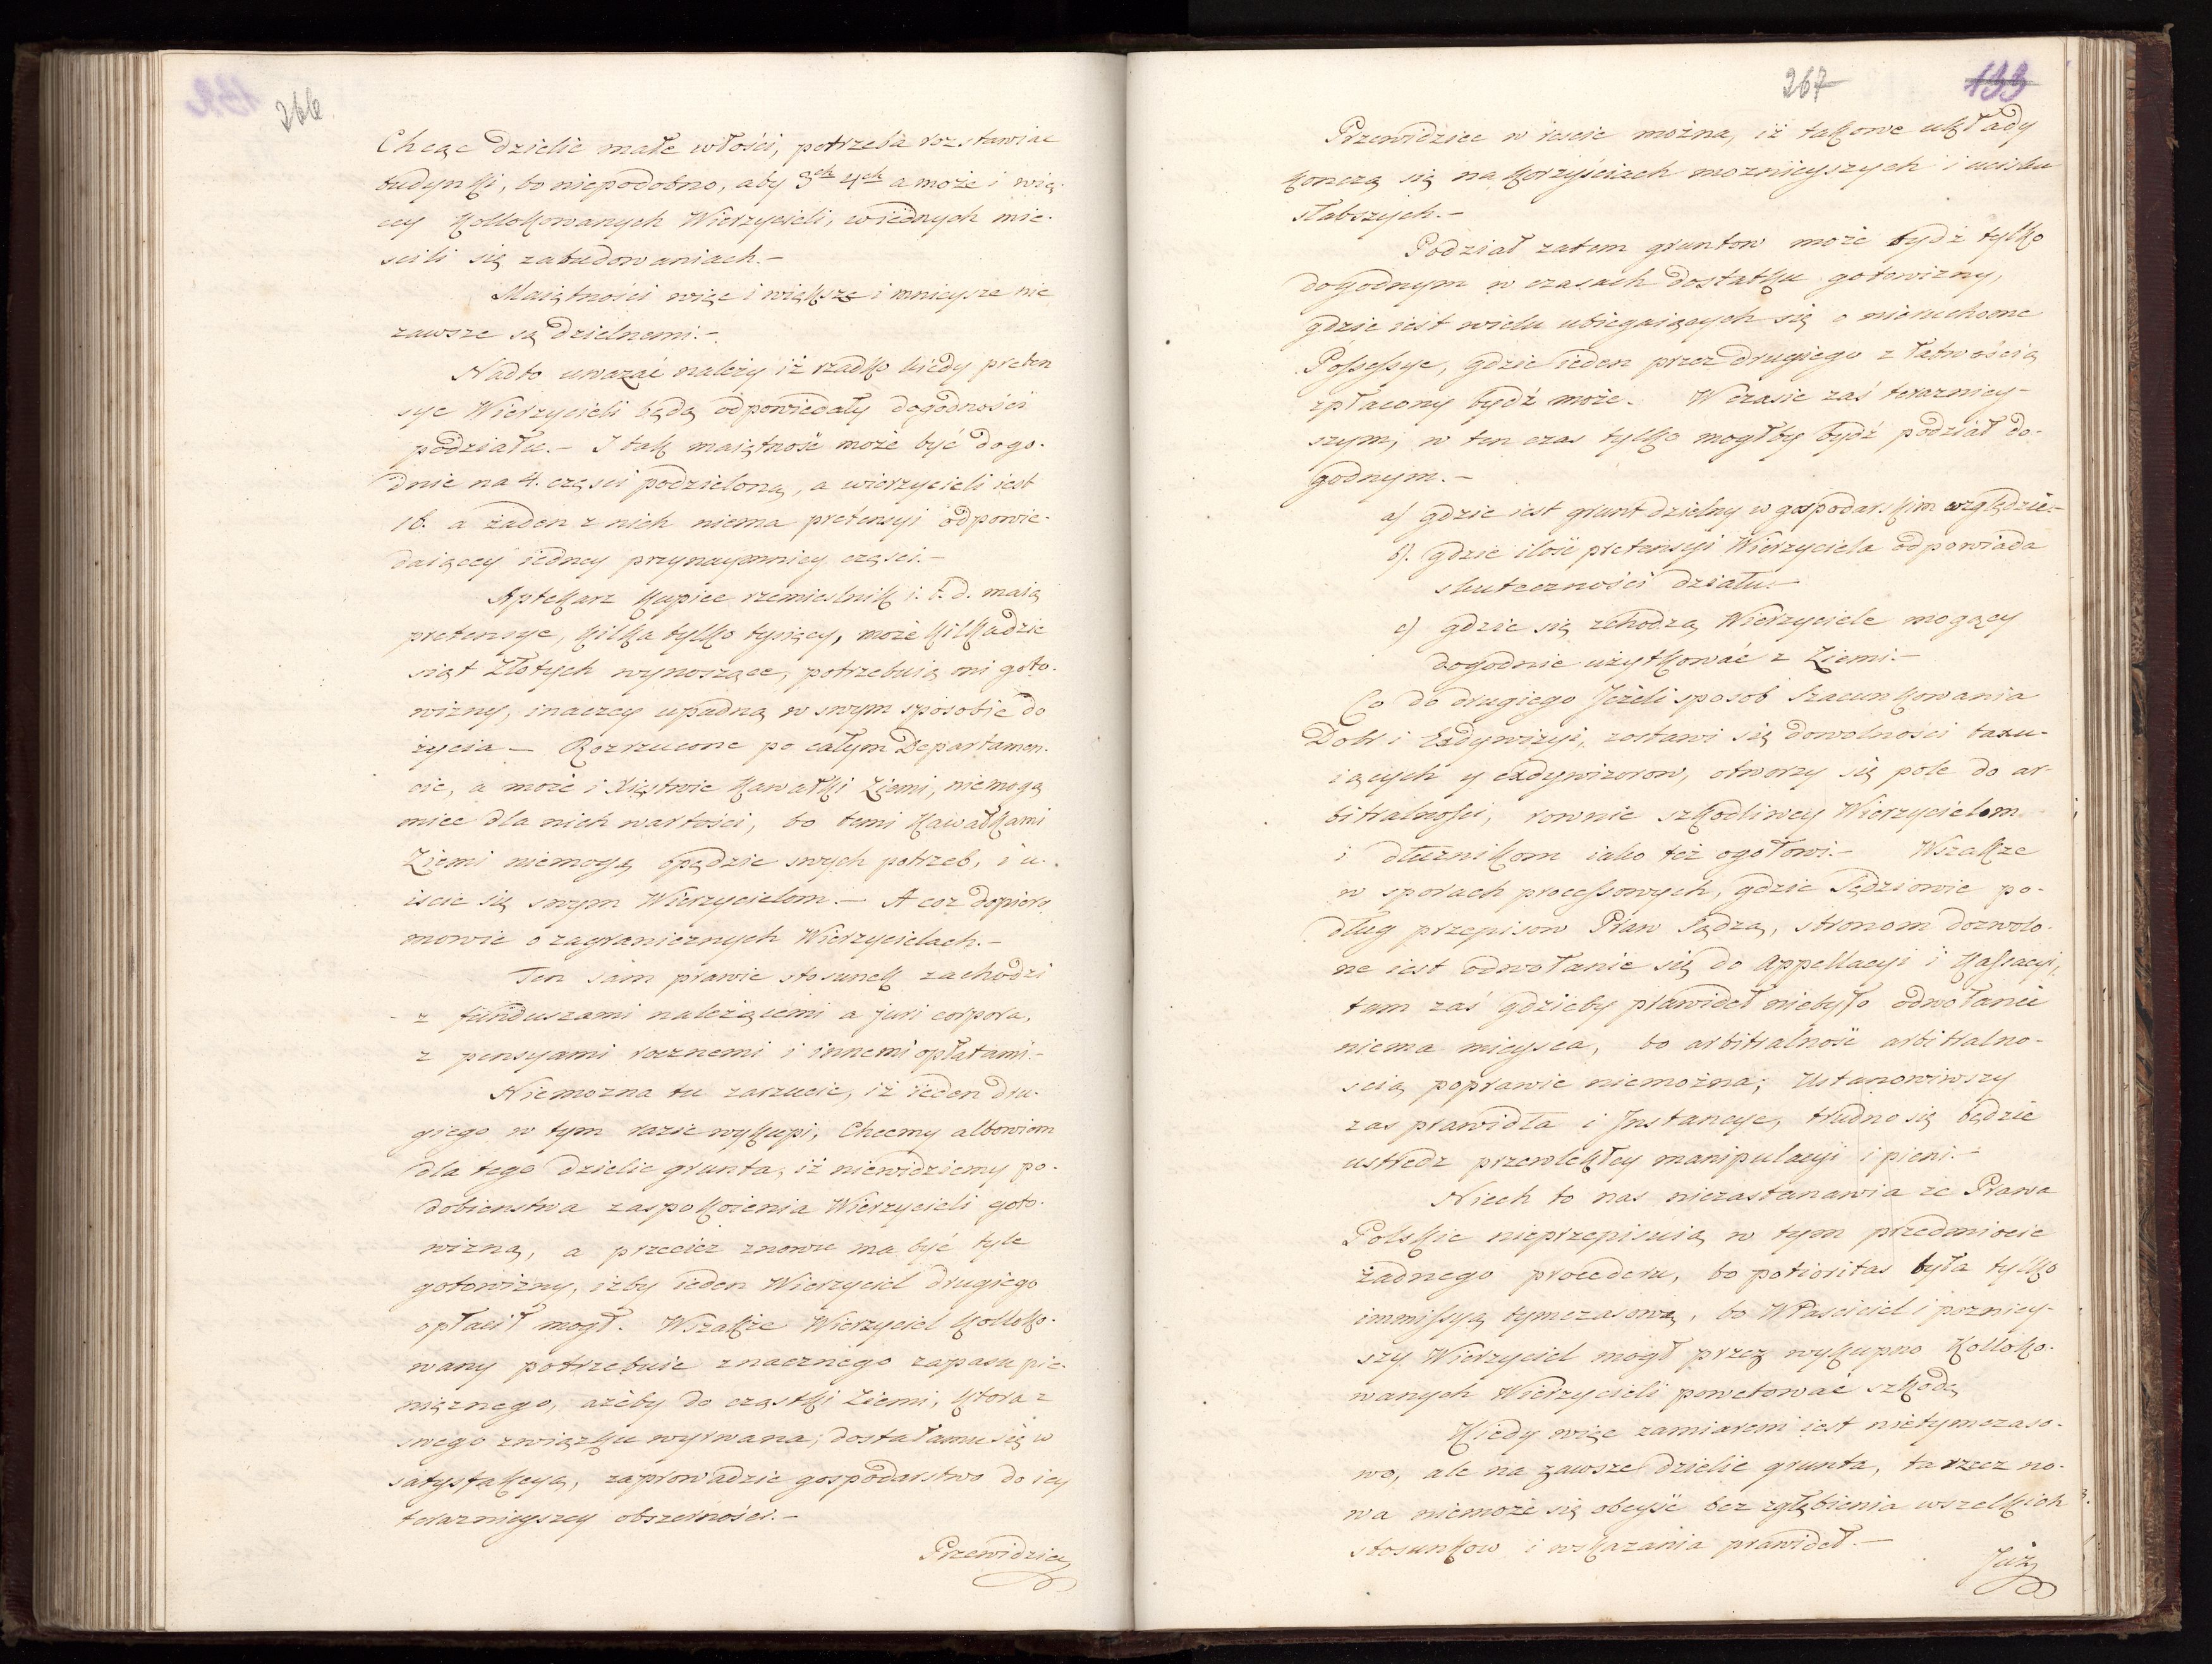 266
Chcąc dzielic małe włości, potrzeba rozstawiac
budynki, bo niepodobno, aby 3ch 4ch a może i wię-
cey Kollokowanych Wierzycieli, w iednych mie-
scili się zabudowaniach.-
Maiętności więc i większe i mnieysze nie
zawsze są dzielnemi.-
Nadto uwazać należy iż rzadko kiedy preten
sye Wierzycieli będą odpowiedały dogodności
podziału.- I tak maiętność może być dogo-
dnie na 4. częsci podzieloną, a wierzycieli iest
16. a żaden z nich niema pretensyi odpowie-
daiącey iedney przynaymniey części.-
Aptekarz kupiec rzemieslnik i.t.d. maią
pretensye, kilka tylko tysięcy, może kilkadzie
siąt Złotych wynoszące, potrzebuią oni goto-
wizny, inaczey upadną w swym sposobie do
życia - Rozrzucone po całym Departamen-
cie, a może i Xięstwie kawałki Ziemi, niemogą
miec dla nich wartości, bo temi kawałkami
Ziemi niemogą opędzic swych potrzeb, i u-
iscic się swym Wierzycielom.- A coz dopiero
mowic o zagranicznych Wierzycielach.-
Ten sam prawie stosunek zachodzi
z funduszami należącemi a juri corpora,
z pensyami rocznemi i innemi opłatami.-
Niemozna tu zarzucic, iż ieden dru-
giego w tym razie wykupi, Chcemy albowiem
dla tego dzielic grunta, iż niewidziemy po-
dobienstwa zaspokoienia Wierzycieli goto-
wizną, a przecież znowu ma być tyle
gotowizny, iżby ieden Wierzyciel drugiego
opłacił mogł. Wszakże Wierzyciel kolloko-
wany potrzebuie znacznego zapasu pie-
niężnego, ażeby do cząstki Ziemi, ktora z
swego związku wyrwana, dostała mu się w
satysfakcyą, zaprowadzic gospodarstwo do iey
teraznieyszey obszerności.-
Przewidziec
267 133
Przewidziec w resie można, iż takowe układy
konczą się na korzyściach moznieyszych i ucisku
słabszych.-
Podział zatem gruntow może bydź tylko
dogodnym w czasach dostatku gotowizny,
gdzie iest wielu ubiegaiących się o nieruchome
Possessye, gdzie ieden przez drugiego z łatwością
zpłacony bydź może. W czasie zaś terazniey-
szym, w ten czas tylko mogłby bydź podział do-
godnym.-
a) gdzie iest grunt dzielny w gospodarskim względzie.-
b). gdzie ilość pretensyi Wierzyciela odpowiada
skuteczności działu.-
c) gdzie się zchodzą Wierzyciele mogący
dogodnie użytkować z Ziemi.-
Co do drugiego Jeżeli sposob Szacunkowania
Dobr i Exdywizyi, zostawi się dowolności taxu-
iących y exdywizorow, otworzy się pole do ar-
bitralności, rownie szkodliwey Wierzycielom
i dłuznikom iako też ogołowi.- Wszakże
w sporach processowych, gdzie Sędziowie po-
dług przepisow Praw sądzą, stronom dozwolo-
ne iest odwołanie się do Appellacyi i Kassacyi,
tam zaś gdzieby prawideł niebyło odwołanie
niema mieysca, bo arbitralność arbitralno-
scią poprawic niemożna; Ustanowiwszy
zas prawidła i Instancye, trudno się będzie
ustredz przewlekłey manipulacyi i pieni.-
Niech to nas niezastanawia że Prawa
Polskie nieprzepisuią w tym przedmiocie
żadnego procederu, bo potioritas była tylko
immissyą tymczasową, bo Właściciel i pozniey-
szy Wierzyciel mogł przez wykupno Kolloko-
wanych Wierzycieli powetować szkodę
Kiedy więc zamiarem iest nietymczaso-
wo, ale na zawsze dzielic grunta, ta rzecz no-
wa niemoże się obeyść bez zgłębienia wszelkich
stosunkow i wskazania prawideł.-
Już